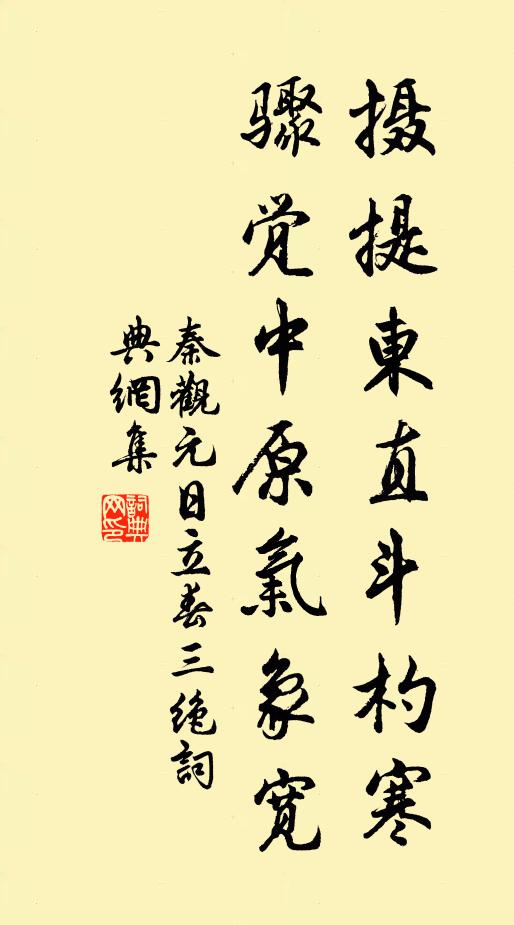 摄提東直斗杓寒
骤觉中原氣象宽
秦觀元日立春三绝詞
典網集
詞典網印